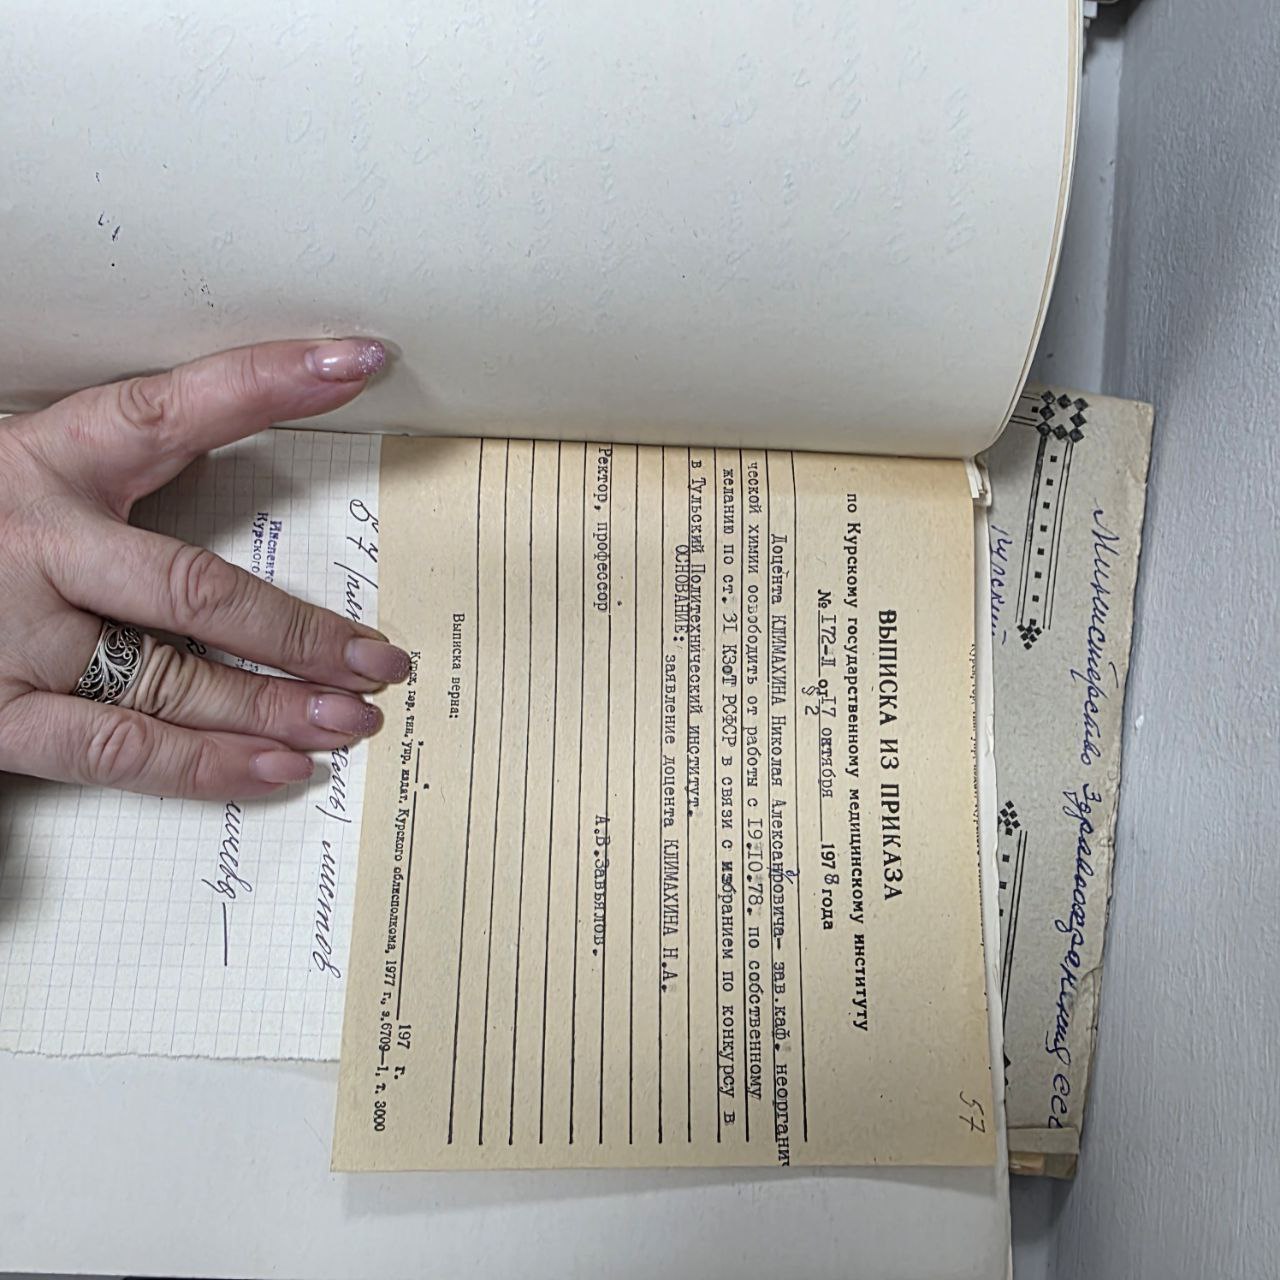 57
ВЫПИСКА ИЗ ПРИКАЗА
по Курскому государственному медицинскому институту
№ 172-Л от 17 октября 1978 года
§ 2
Доцента КЛИМАХИНА Николая Александровича- зав.каф. неоргани
ческой химии освободить от работы с 19.10.78. по собственному
желанию по ст. 31 КЗоТ РСФСР в связи с избранием по конкурсу в
в Тульский Политехнический институт.
ОСНОВАНИЕ: заявление доцента КЛИМАХИНА Н.А.
Ректор, профессор А.В.Завьялов.
Выписка верна:
„ “ 197 г.
Курск, гор. тип. упр. издат. Курского облисполкома, 1977 г., з. 6709—1, т. 3000
57 листов
Курского
Министерство Здравоохранения ССС
Курский